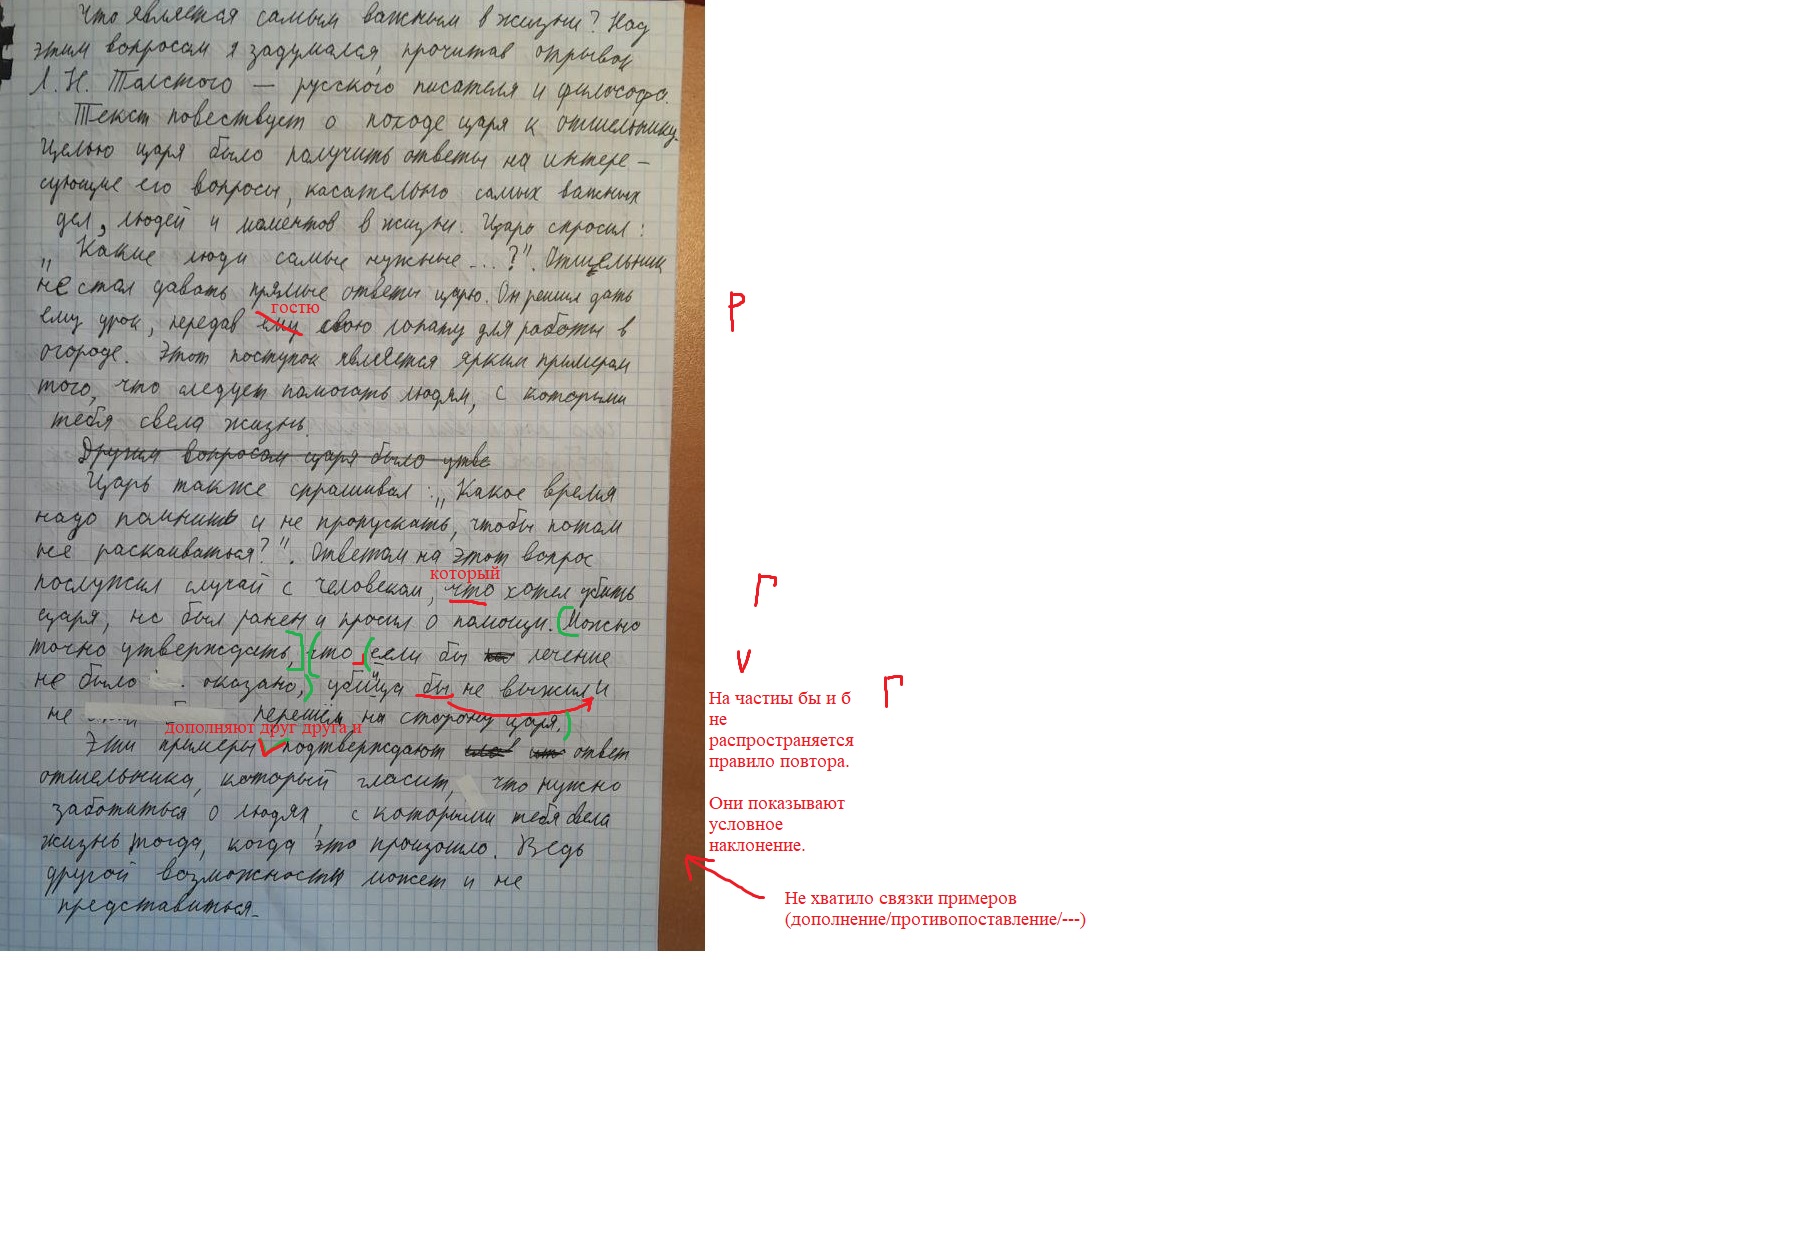 Что является самым важным в жизни? Над
этим вопросом я задумался, прочитав отрывок
Л. Н. Толстого — русского писателя и философа.
Текст повествует о походе царя к отшельнику.
Целью царя было получить ответы на интере-
сующие его вопросы, касательно самых важных
дел, людей и моментов в жизни. Царь спросил:
„Какие люди самые нужные...?". Отшельник
не стал давать прямые ответы царю. Он решил дать
гостю
ему урок, передав ему свою лопату для работы в
Р
огороде. Этот поступок является ярким примером
того, что следует помогать людям, с которыми
тебя свела жизнь.
Другим вопросом царя было утве
Царь также спрашивал: „Какое время
надо помнить и не пропускать, чтобы потом
не раскаиваться?". Ответом на этот вопрос
который
послужил случай с человеком, что хотел убить
Г
царя, но был ранен и просил о помощи. (Можно
точно утверждать,] (что (если бы лечение
V
не было оказано,) убийца бы не выжил и
Г
не перешёл на сторону царя,)
дополняют друг друга и
Эти примеры подтверждают ответ
отшельника, который гласит, что нужно
заботиться о людях, с которыми тебя свела
жизнь тогда, когда это произошло. Ведь
другой возможности может и не
представиться.
На частиы бы и б
не
распространяется
правило повтора.
Они показывают
условное
наклонение.
Не хватило связки примеров
(дополнение/противопоставление/---)